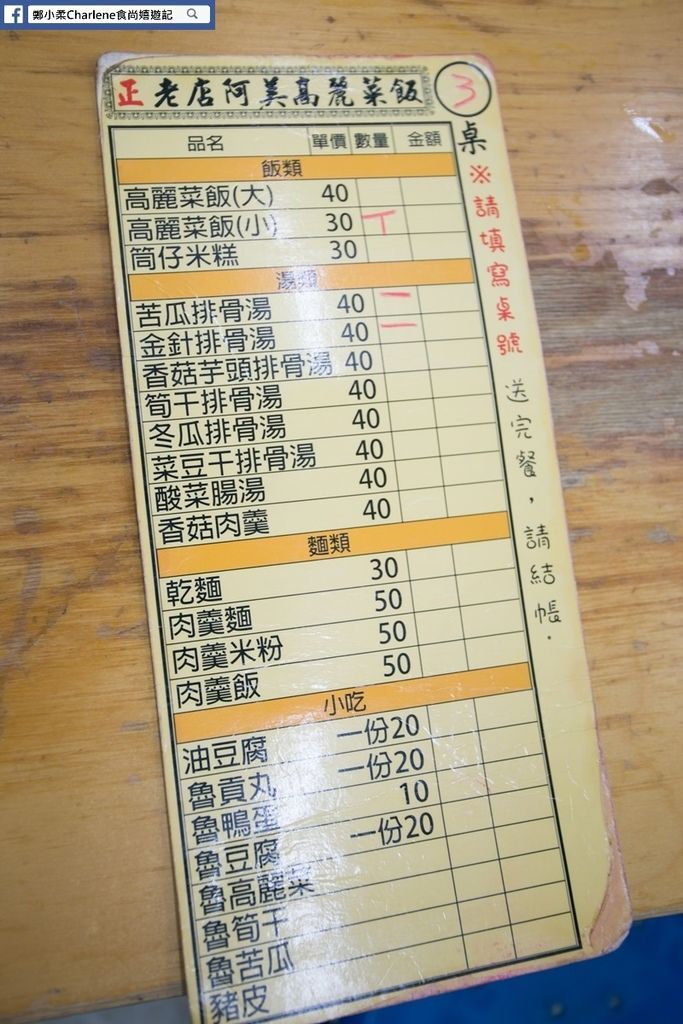 鄭小柔Charlene食尚嬉遊記
正老店阿美高麗菜飯
3桌
※請填寫桌號 送完餐,請結帳.
品名 單價 數量 金額
飯類
高麗菜飯(大) 40
高麗菜飯(小) 30 ㄒ
筒仔米糕 30
湯類
苦瓜排骨湯 40 一
金針排骨湯 40 一
香菇芋頭排骨湯 40
筍干排骨湯 40
冬瓜排骨湯 40
菜豆干排骨湯 40
酸菜腸湯 40
香菇肉羹 40
麵類
乾麵 30
肉羹麵 50
肉羹米粉 50
肉羹飯 50
小吃
油豆腐 一份20
魯貢丸 一份20
魯鴨蛋 10
魯豆腐 一份20
魯高麗菜
魯筍干
魯苦瓜
豬皮